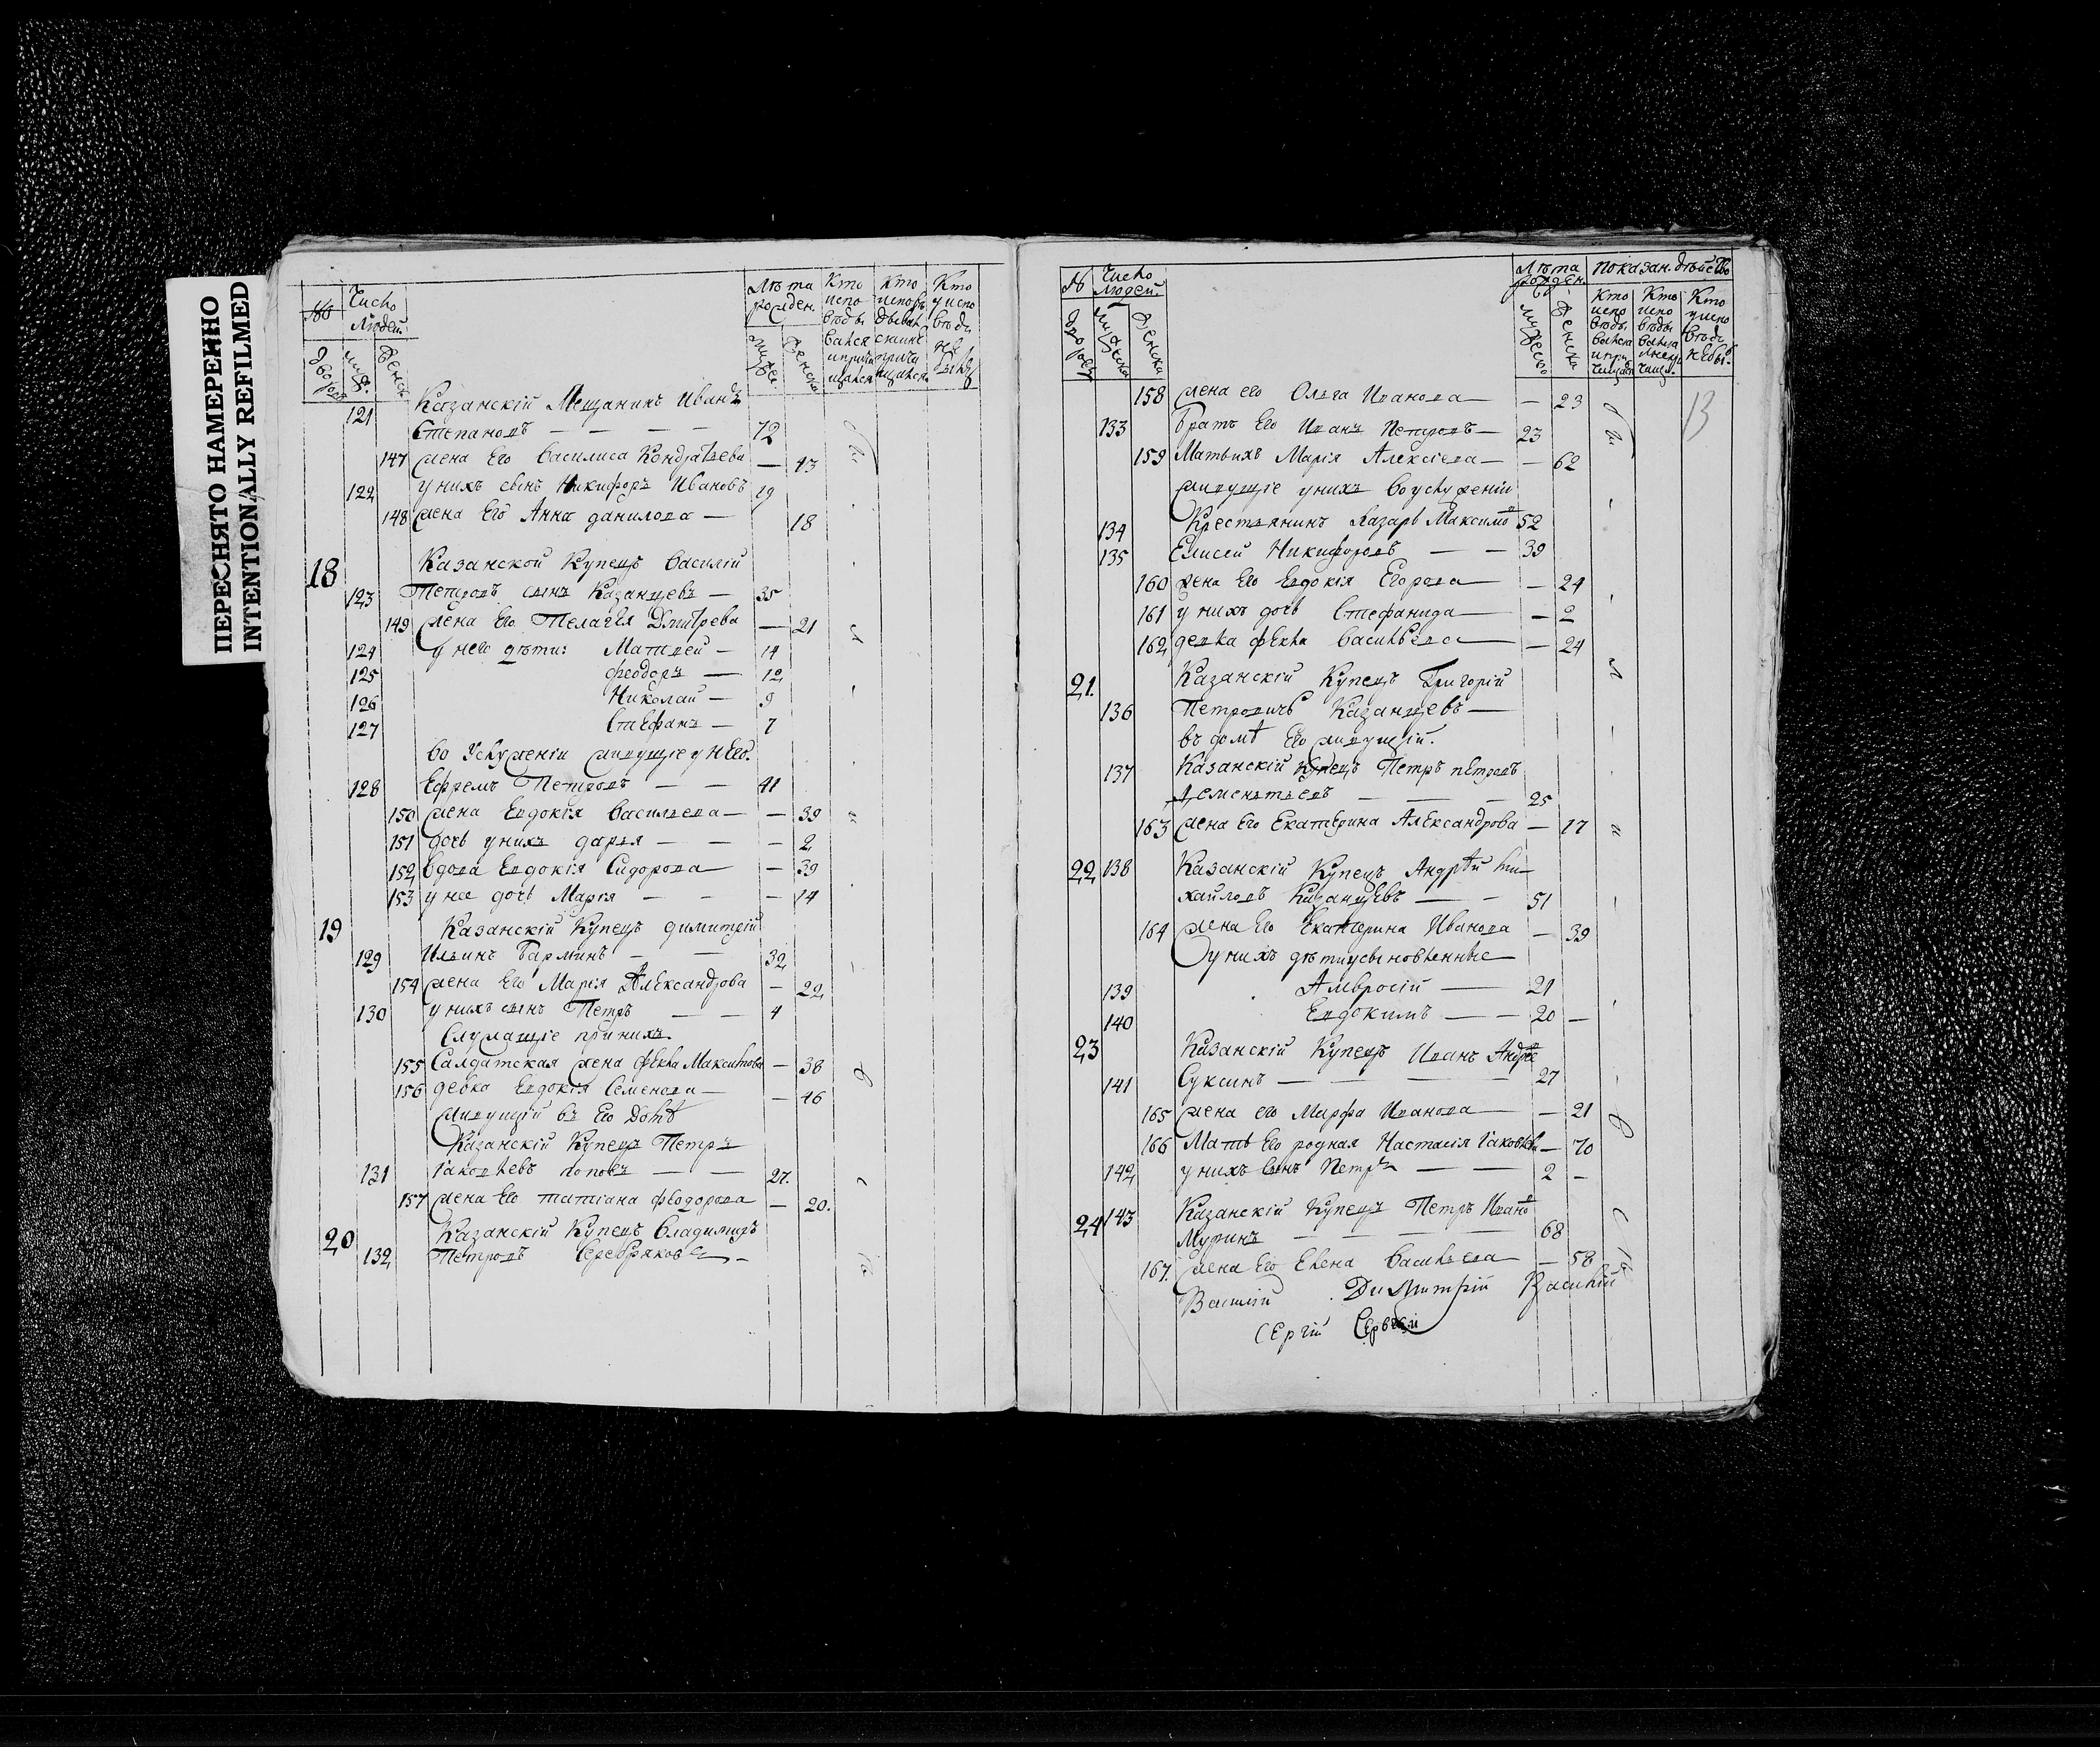 ПЕРЕСНЯТО НАМЕРЕННО
INTENTIONALLY REFILMED
Число
Людей
Лѣта
рожден.
Кто
Кто
Кто
121 Казанскій Мещанинъ Иванъ
Степановъ — — — — 72
147 жена Его Василиса Кондратьева — 43
122 у нихъ сынъ Никифоръ Ивановъ 19
148 жена Его Анна данилова — 18
18 Казанской Купецъ Василій
123 Петровъ сынъ Казанцевъ — 35
149 жена Его Пелагея Дмитрева — 21
124 у него дѣти: Матвей — 14
125 феодоръ — 12
126 Николай — 9
127 Стефанъ — 7
во Услуженіи живущіе у него.
128 Ефремъ Петровъ — — 41
150 жена Евдокія Васильева — — 39
151 дочь у нихъ дарья — — — 2
152 вдова Евдокія Сидорова — — 39
153 у нее дочь Марія — — — 14
19 Казанскій Купецъ димитрій
129 Ильинъ Барминъ — — 32
154 жена Его Марія Александрова — 22
130 у нихъ сынъ Петръ — — 4
Служащіе при нихъ
155 Салдатская жена фекла Максимова — 38
156 девка Евдокія Семенова — — 46
живущій въ Его Домѣ
Казанскій Купецъ Петръ
131 Іаковлевъ поповъ — — 27.
157 жена Его татіана феодорова — 20.
20 Казанскій Купецъ Владимиръ
132 Петровъ Серебряковъ —
№ Число
Людей.
Лѣта
рожден.
Показан. дѣйство
Кто
Кто
Кто
158 жена его Ольга Иванова — — 23
13
133 братъ Его Иванъ Петровъ — 23
159 Мать ихъ Марія Алексіева — — 62
живущіе у нихъ во услуженіи
134 Крестьянинъ Лазарь Максимов 52
135 Елисей Никифоровъ — — 39
160 жена Его Евдокія Егорова — — 24
161 у нихъ дочь Стефанида — — 2
162 девка фекла Васильева — — 24
21. Казанскій Купецъ Григорій
136 Петровичъ Казанцевъ —
въ домѣ Его живущій.
137 Казанскій Купецъ Петръ петровъ
Дементьевъ — — — 25
163 жена Его Екатерина Александрова — 17
22 138 Казанскій Купецъ Андрѣй Ми
хайловъ Казанцевъ — — 51
164 жена Его Екатерина Иванова — 39
у нихъ дѣти усыновленные
139 Амвросій — 21
140 Евдокимъ — — 20 —
23 Казанскій Купецъ Иванъ Андрее
141 Суксинъ — — — — 27
165 жена его Марфа Иванова — — 21
166 Мать Его родная Настасія Іаковлев — 70
142 у нихъ сынъ Петръ — — 2 —
24 143 Казанскій Купецъ Петръ Ивано
Муринъ — — — — 68
167. жена Его Елена Васильева — 58
Василій Димитрій Василій
Сергій Сергѣй